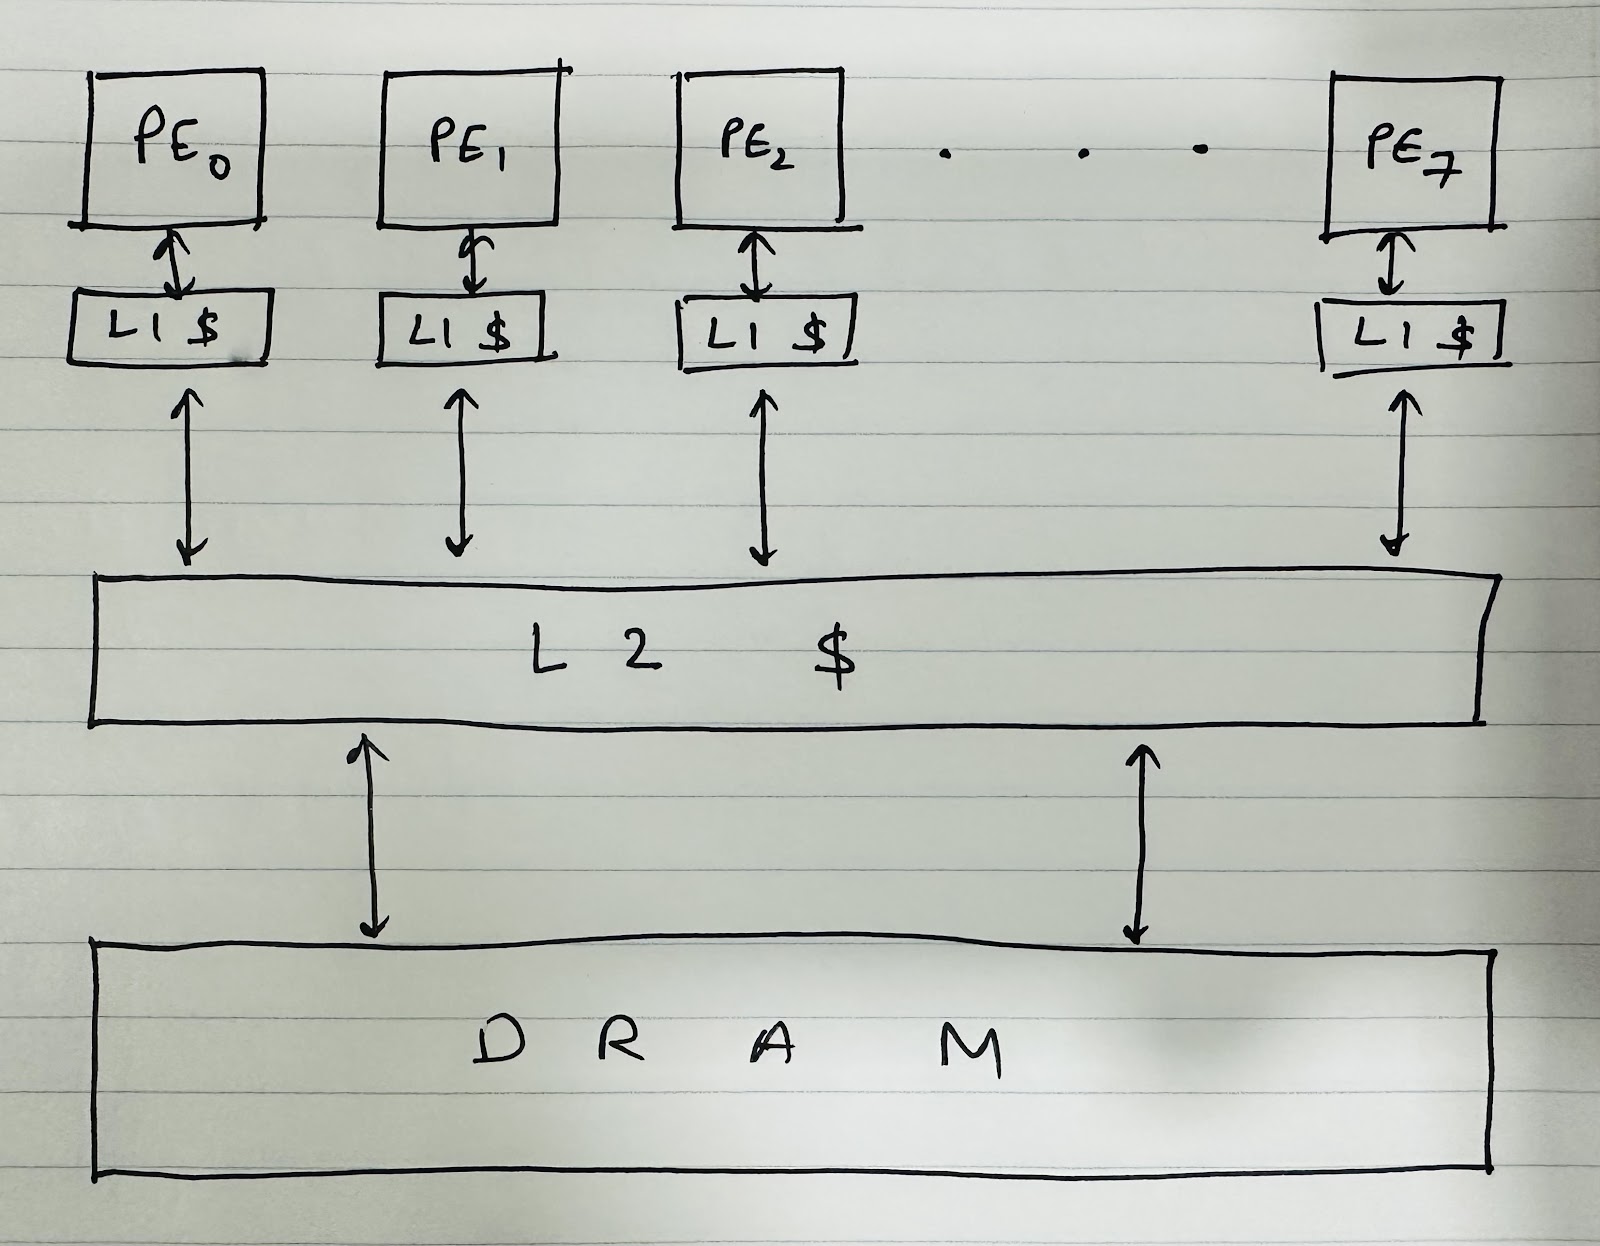 PE0 PE1 PE2 . . . PE7
L1 $ L1 $ L1 $ L1 $
L2 $
DRAM